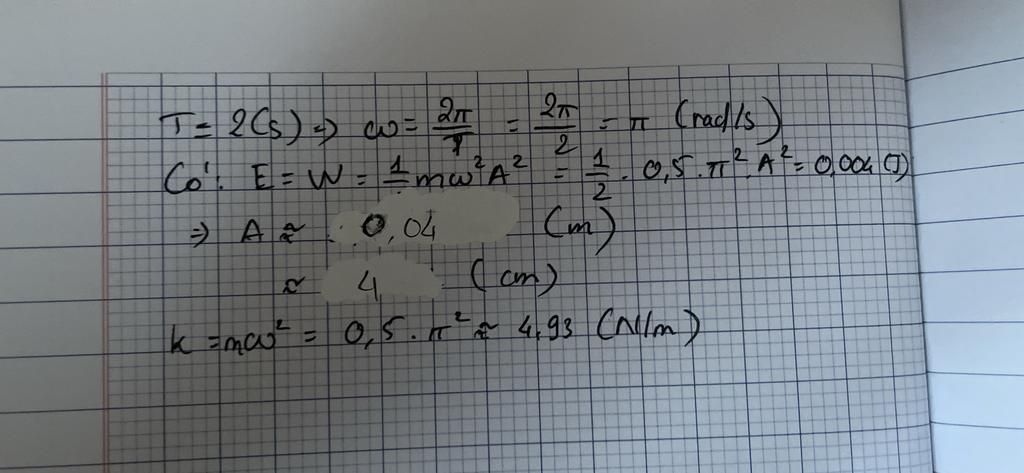 T = 2(s) ⇒ ω = 2π/T = 2π/2 = π (rad/s)
Có: E = W = 1/2 mω²A² = 1/2 . 0,5 . π² . A² = 0,004 (J)
⇒ A ≈ 0,04 (m)
≈ 4 (cm)
k = mω² = 0,5 . π² ≈ 4,93 (N/m)